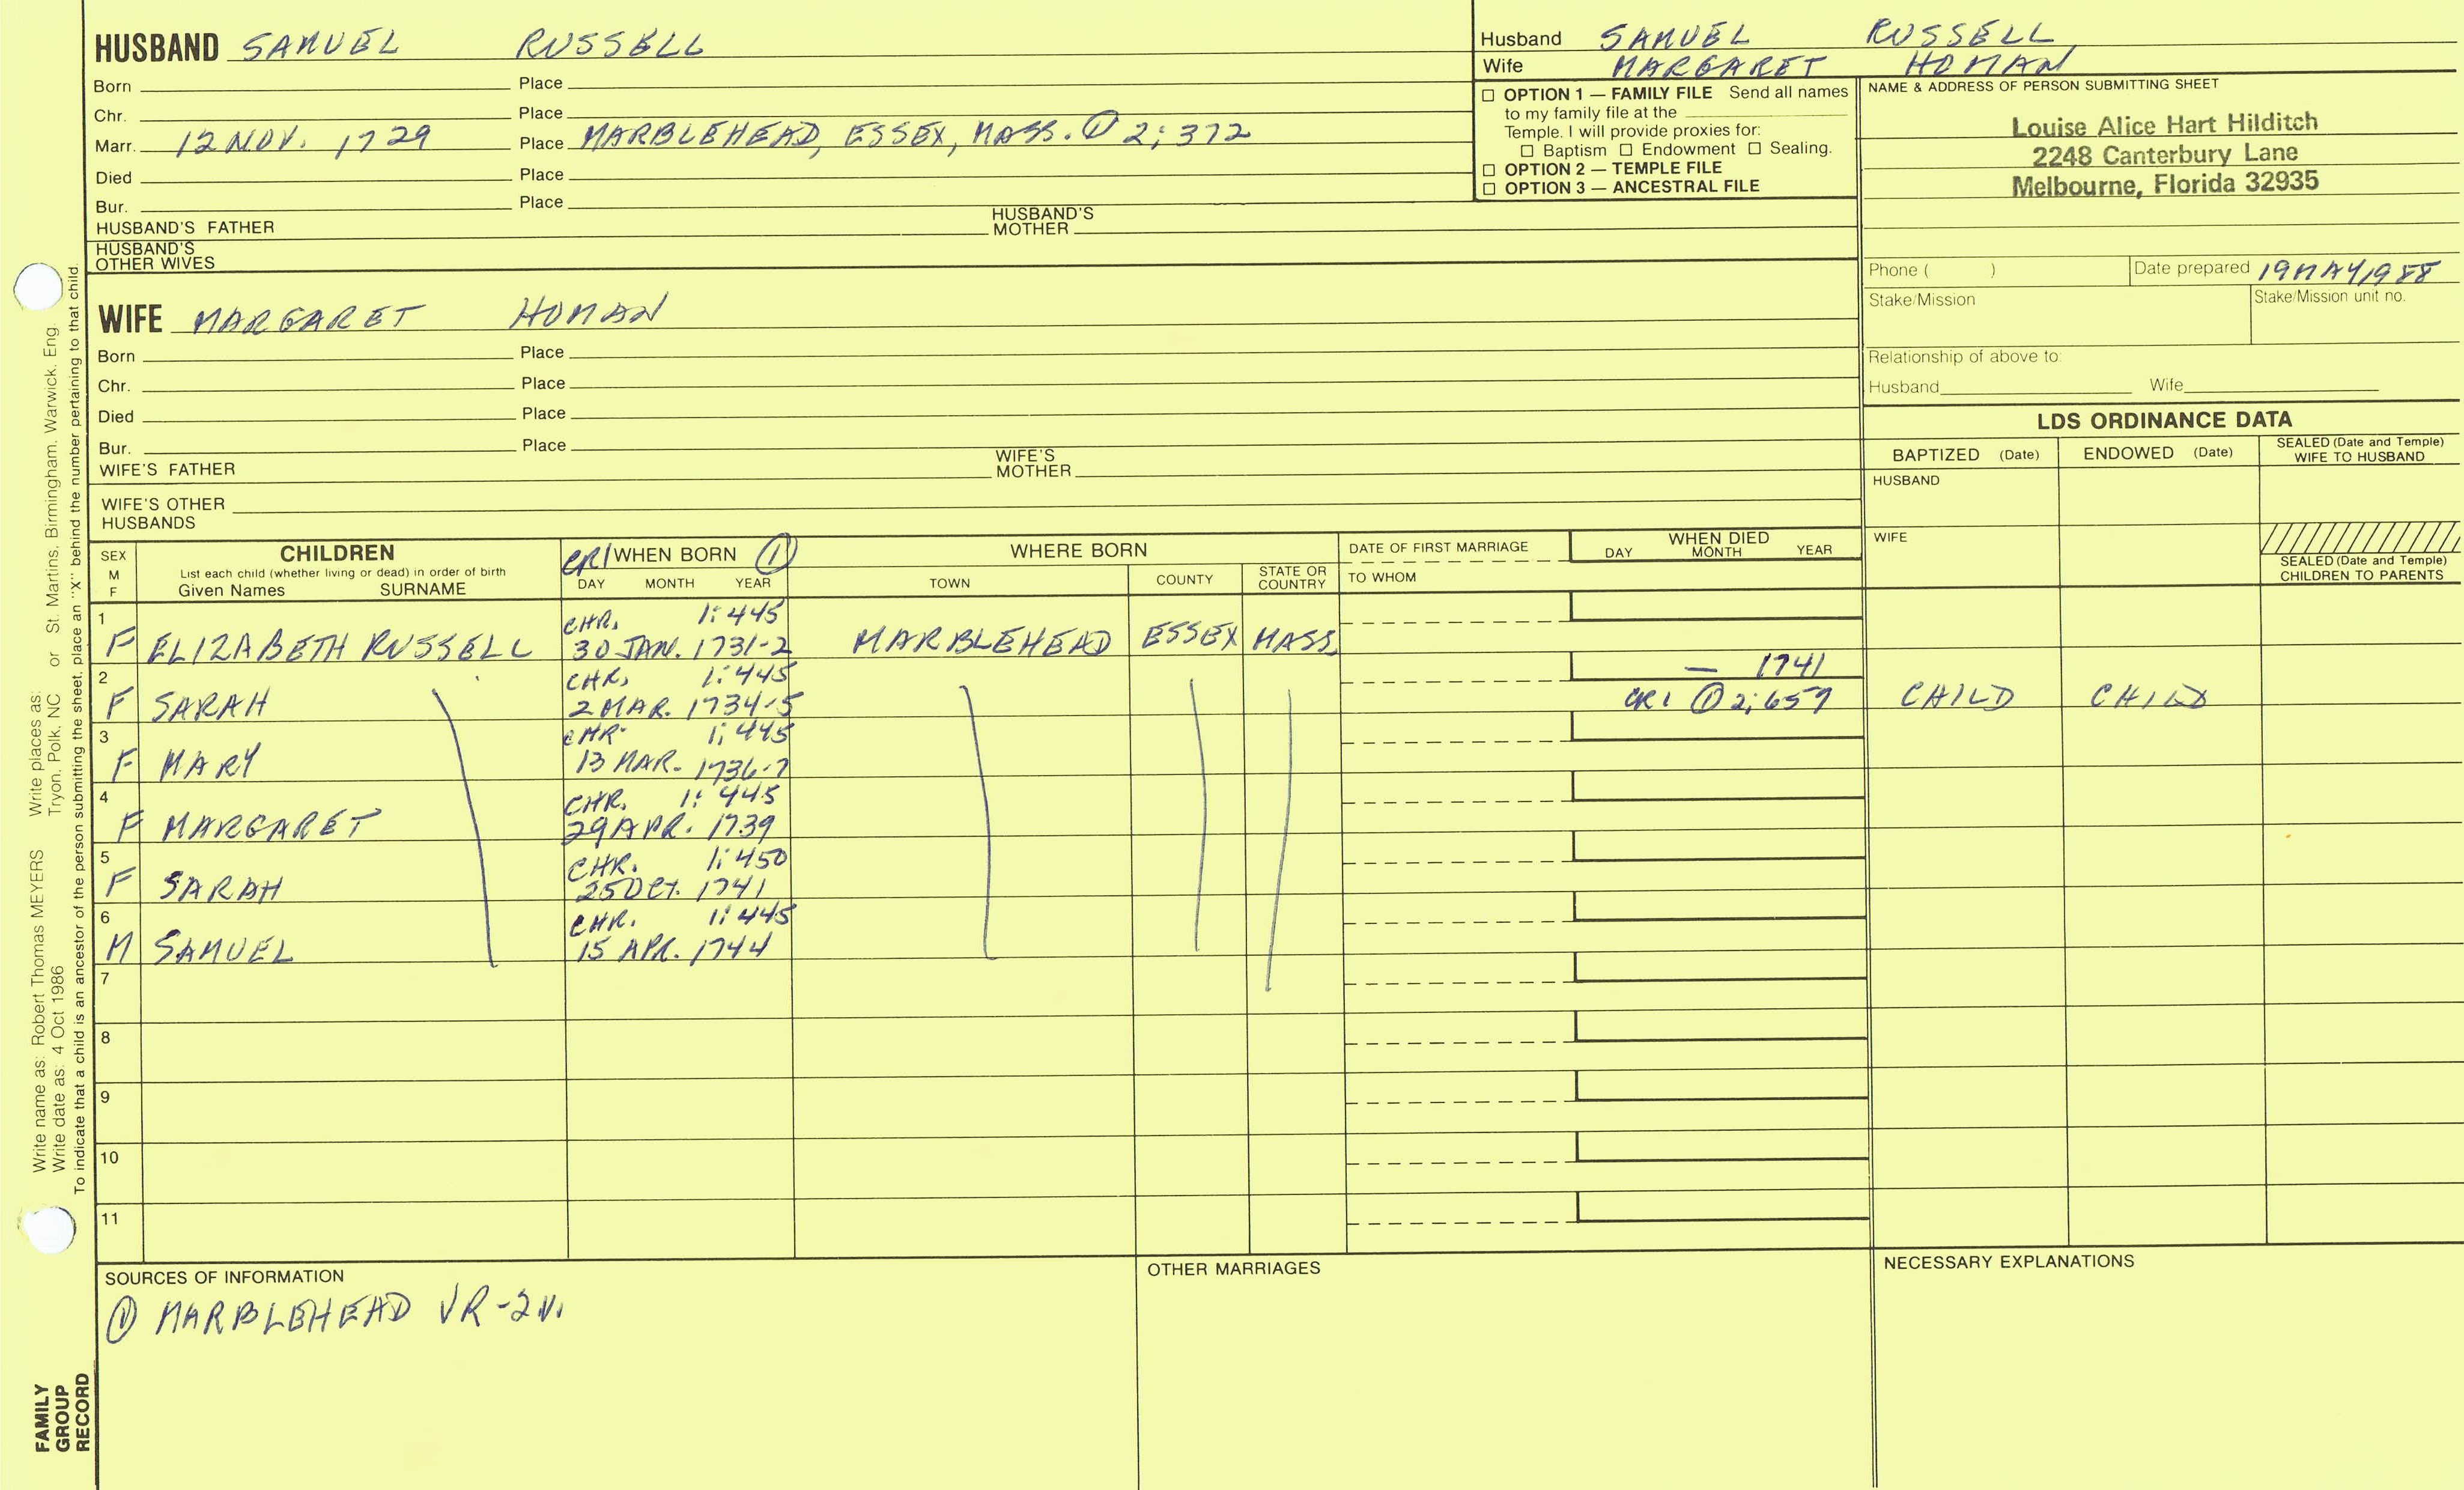 HUSBAND SAMUEL RUSSELL
Born Place
Chr. Place
Marr. 12 NOV. 1729 Place MARBLEHEAD, ESSEX, MASS. ① 2; 372
Died Place
Bur. Place
HUSBAND'S FATHER HUSBAND'S MOTHER
HUSBAND'S
OTHER WIVES
Husband SAMUEL RUSSELL
Wife MARGARET HOMAN
☐ OPTION 1 — FAMILY FILE Send all names
to my family file at the
Temple. I will provide proxies for:
☐ Baptism ☐ Endowment ☐ Sealing.
☐ OPTION 2 — TEMPLE FILE
☐ OPTION 3 — ANCESTRAL FILE
NAME & ADDRESS OF PERSON SUBMITTING SHEET
Louise Alice Hart Hilditch
2248 Canterbury Lane
Melbourne, Florida 32935
Phone ( ) Date prepared 19 MAY 1988
Stake/Mission Stake/Mission unit no.
Relationship of above to:
Husband Wife
WIFE MARGARET HOMAN
Born Place
Chr. Place
Died Place
Bur. Place
WIFE'S FATHER WIFE'S MOTHER
WIFE'S OTHER
HUSBANDS
LDS ORDINANCE DATA
BAPTIZED (Date) ENDOWED (Date) SEALED (Date and Temple)
WIFE TO HUSBAND
HUSBAND
WIFE
SEALED (Date and Temple)
CHILDREN TO PARENTS
SEX
M
F
CHILDREN
List each child (whether living or dead) in order of birth
Given Names SURNAME
CR1 WHEN BORN ①
DAY MONTH YEAR
WHERE BORN
TOWN COUNTY STATE OR COUNTRY
DATE OF FIRST MARRIAGE
TO WHOM
WHEN DIED
DAY MONTH YEAR
1 CHR. 1:445
F ELIZABETH RUSSELL 30 JAN. 1731-2 MARBLEHEAD ESSEX MASS.
2 CHR. 1:445 — 1741
F SARAH 2 MAR. 1734-5 CR1 ① 2; 657 CHILD CHILD
3 CHR. 1; 445
F MARY 13 MAR. 1736-7
4 CHR. 1: 445
F MARGARET 29 APR. 1739
5 CHR. 1:450
F SARAH 25 OCT. 1741
6 CHR. 1:445
M SAMUEL 15 APR. 1744
7
8
9
10
11
SOURCES OF INFORMATION
① MARBLEHEAD VR-2V.
OTHER MARRIAGES
NECESSARY EXPLANATIONS
Write name as: Robert Thomas MEYERS Write places as:
Write date as: 4 Oct 1986 Tryon, Polk, NC or St. Martins, Birmingham, Warwick, Eng.
To indicate that a child is an ancestor of the person submitting the sheet, place an "X" behind the number pertaining to that child.
FAMILY
GROUP
RECORD